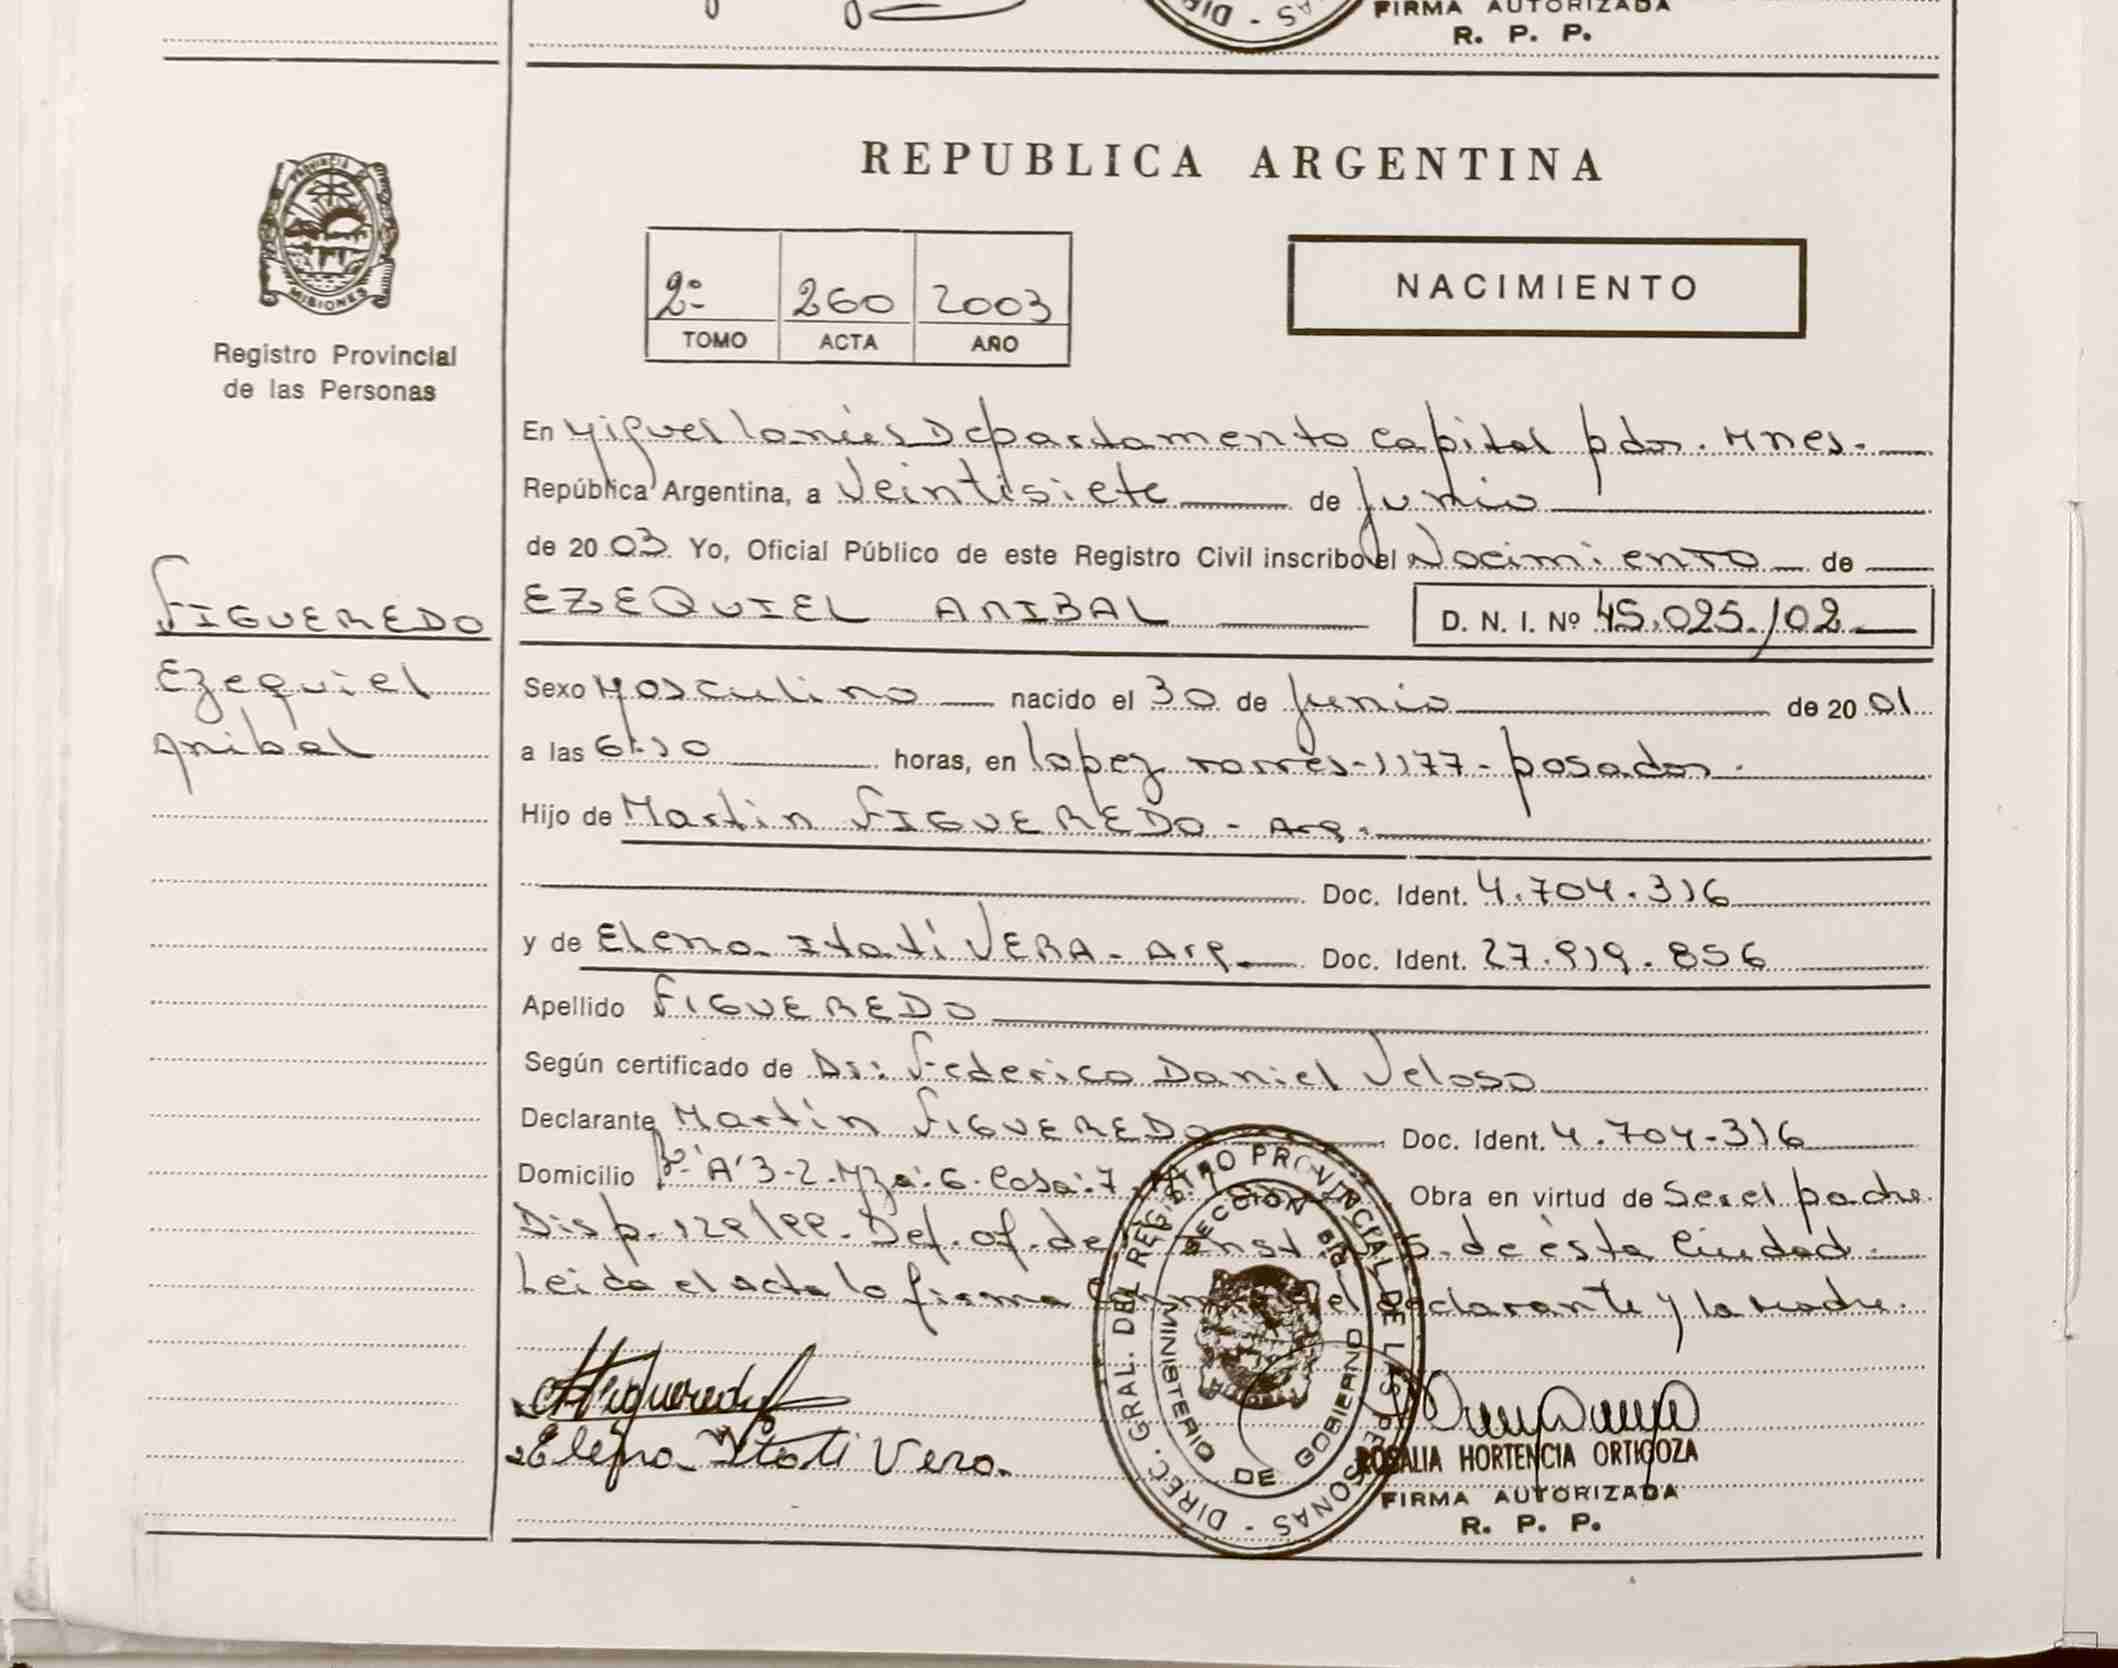 FIRMA AUTORIZADA
R. P. P.
PROVINCIA DE MISIONES
Registro Provincial
de las Personas
REPUBLICA ARGENTINA
2º 260 2003
TOMO ACTA AÑO
NACIMIENTO
En Miguel Lanús Departamento Capital pdas. Mnes.
República Argentina, a Veintisiete de Junio
de 2003 Yo, Oficial Público de este Registro Civil inscribo el Nacimiento de
FIGUEREDO
Ezequiel
Anibal
EZEQUIEL ANIBAL D. N. I. Nº 45.025.102
Sexo Masculino nacido el 30 de Junio de 2001
a las horas, en Lopez torres-1177-posadas.
Hijo de Martin FIGUEREDO - Arg.
Doc. Ident. 4.704.316
y de Elena Itatí VERA - Arg. Doc. Ident. 27.919.856
Apellido FIGUEREDO
Según certificado de Dr: Federico Daniel Veloso
Declarante Martín FIGUEREDO Doc. Ident. 4.704.316
Domicilio "A" 3-2. Mza: 6. Casa: 7. Obra en virtud de Ser el padre
Disp. 129/99. Def. of. de de ésta Ciudad.
Leida el acta lo firma el declarante y la madre.
Elena Itati Vera
DIREC. GRAL. DEL REGISTRO PROVINCIAL DE LAS PERSONAS
MINISTERIO DE GOBIERNO
ROSALIA HORTENCIA ORTIGOZA
FIRMA AUTORIZADA
R. P. P.